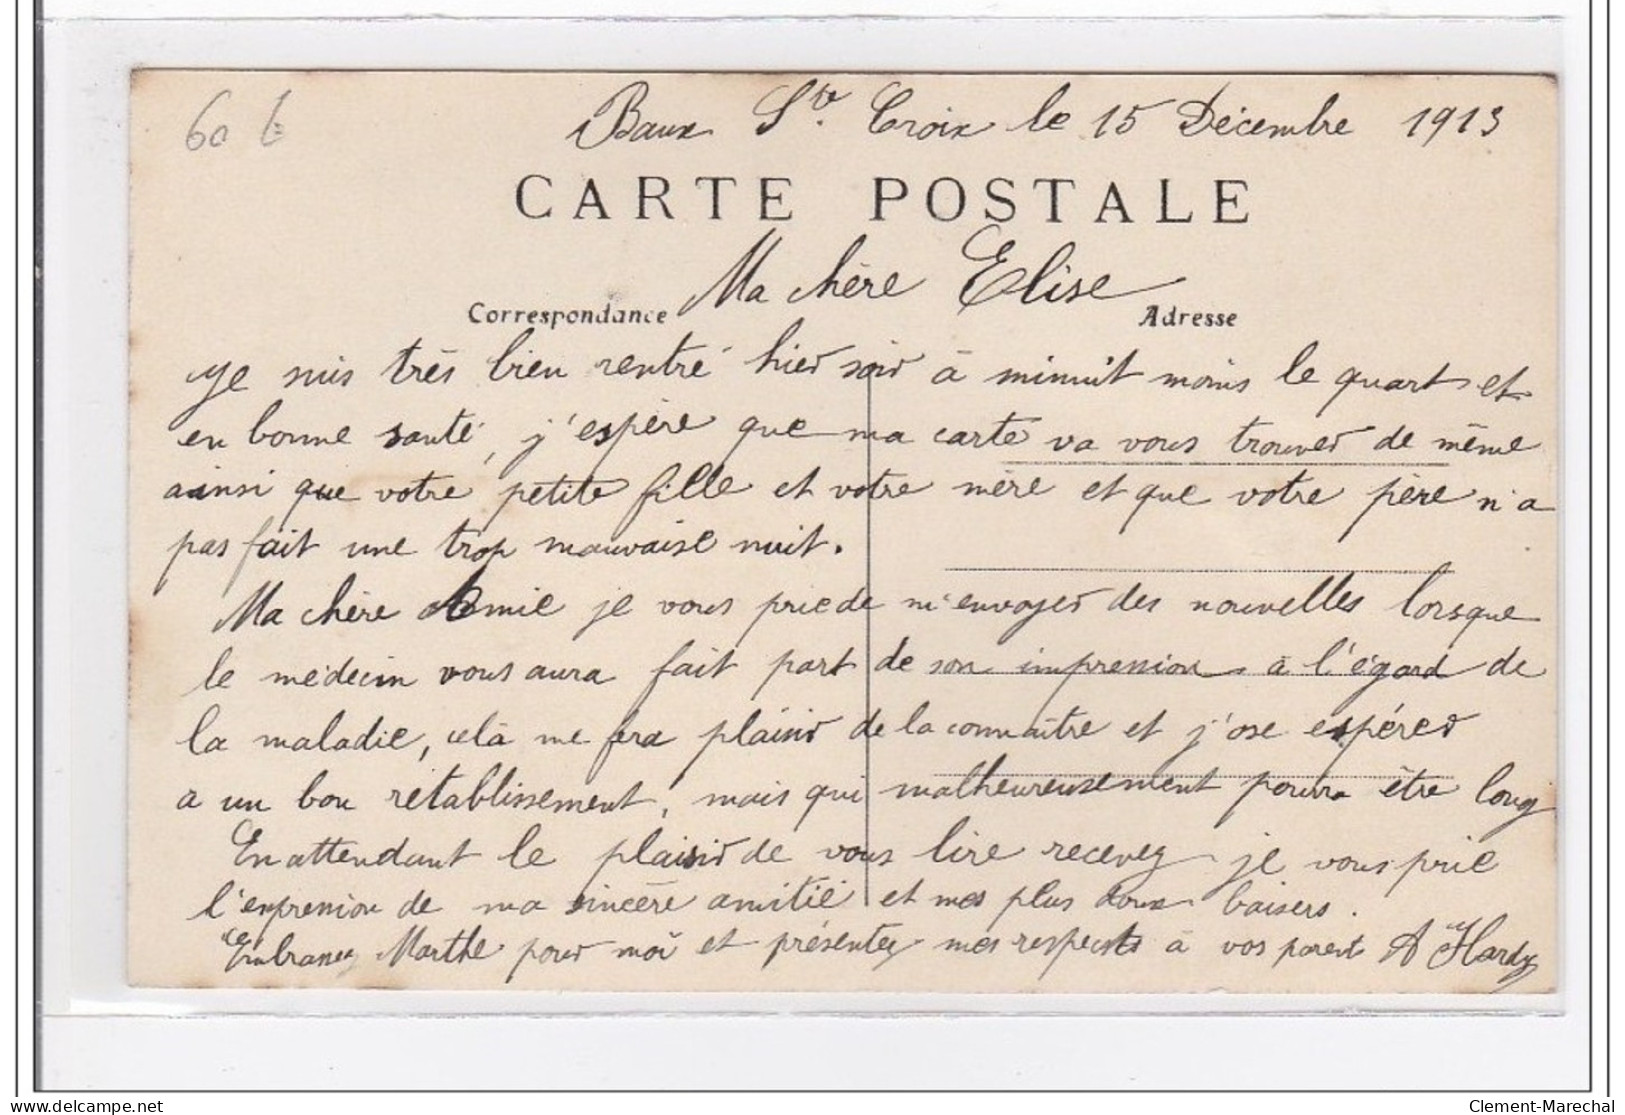 60 E
Baux Ste. Croix le 15 Décembre 1913
CARTE POSTALE
Ma chère Elise
Correspondance
Adresse
Je suis très bien rentré hier soir à minuit moins le quart et
en bonne santé, j'espère que ma carte va vous trouver de même
ainsi que votre petite fille et votre mère et que votre père n'a
pas fait une trop mauvaise nuit.
Ma chère Amie je vous prie de m'envoyer des nouvelles lorsque
le médecin vous aura fait part de son impression à l'égard de
la maladie, celà me fera plaisir de la connaître et j'ose espérer
a un bon rétablissement, mais qui malheureusement pourra être long
En attendant le plaisir de vous lire recevez je vous prie
l'expression de ma sincère amitié et mes plus doux baisers.
Embrassez Marthe pour moi et présentez mes respects à vos parent A Hardy
Clement-Marechal
delcampe.net